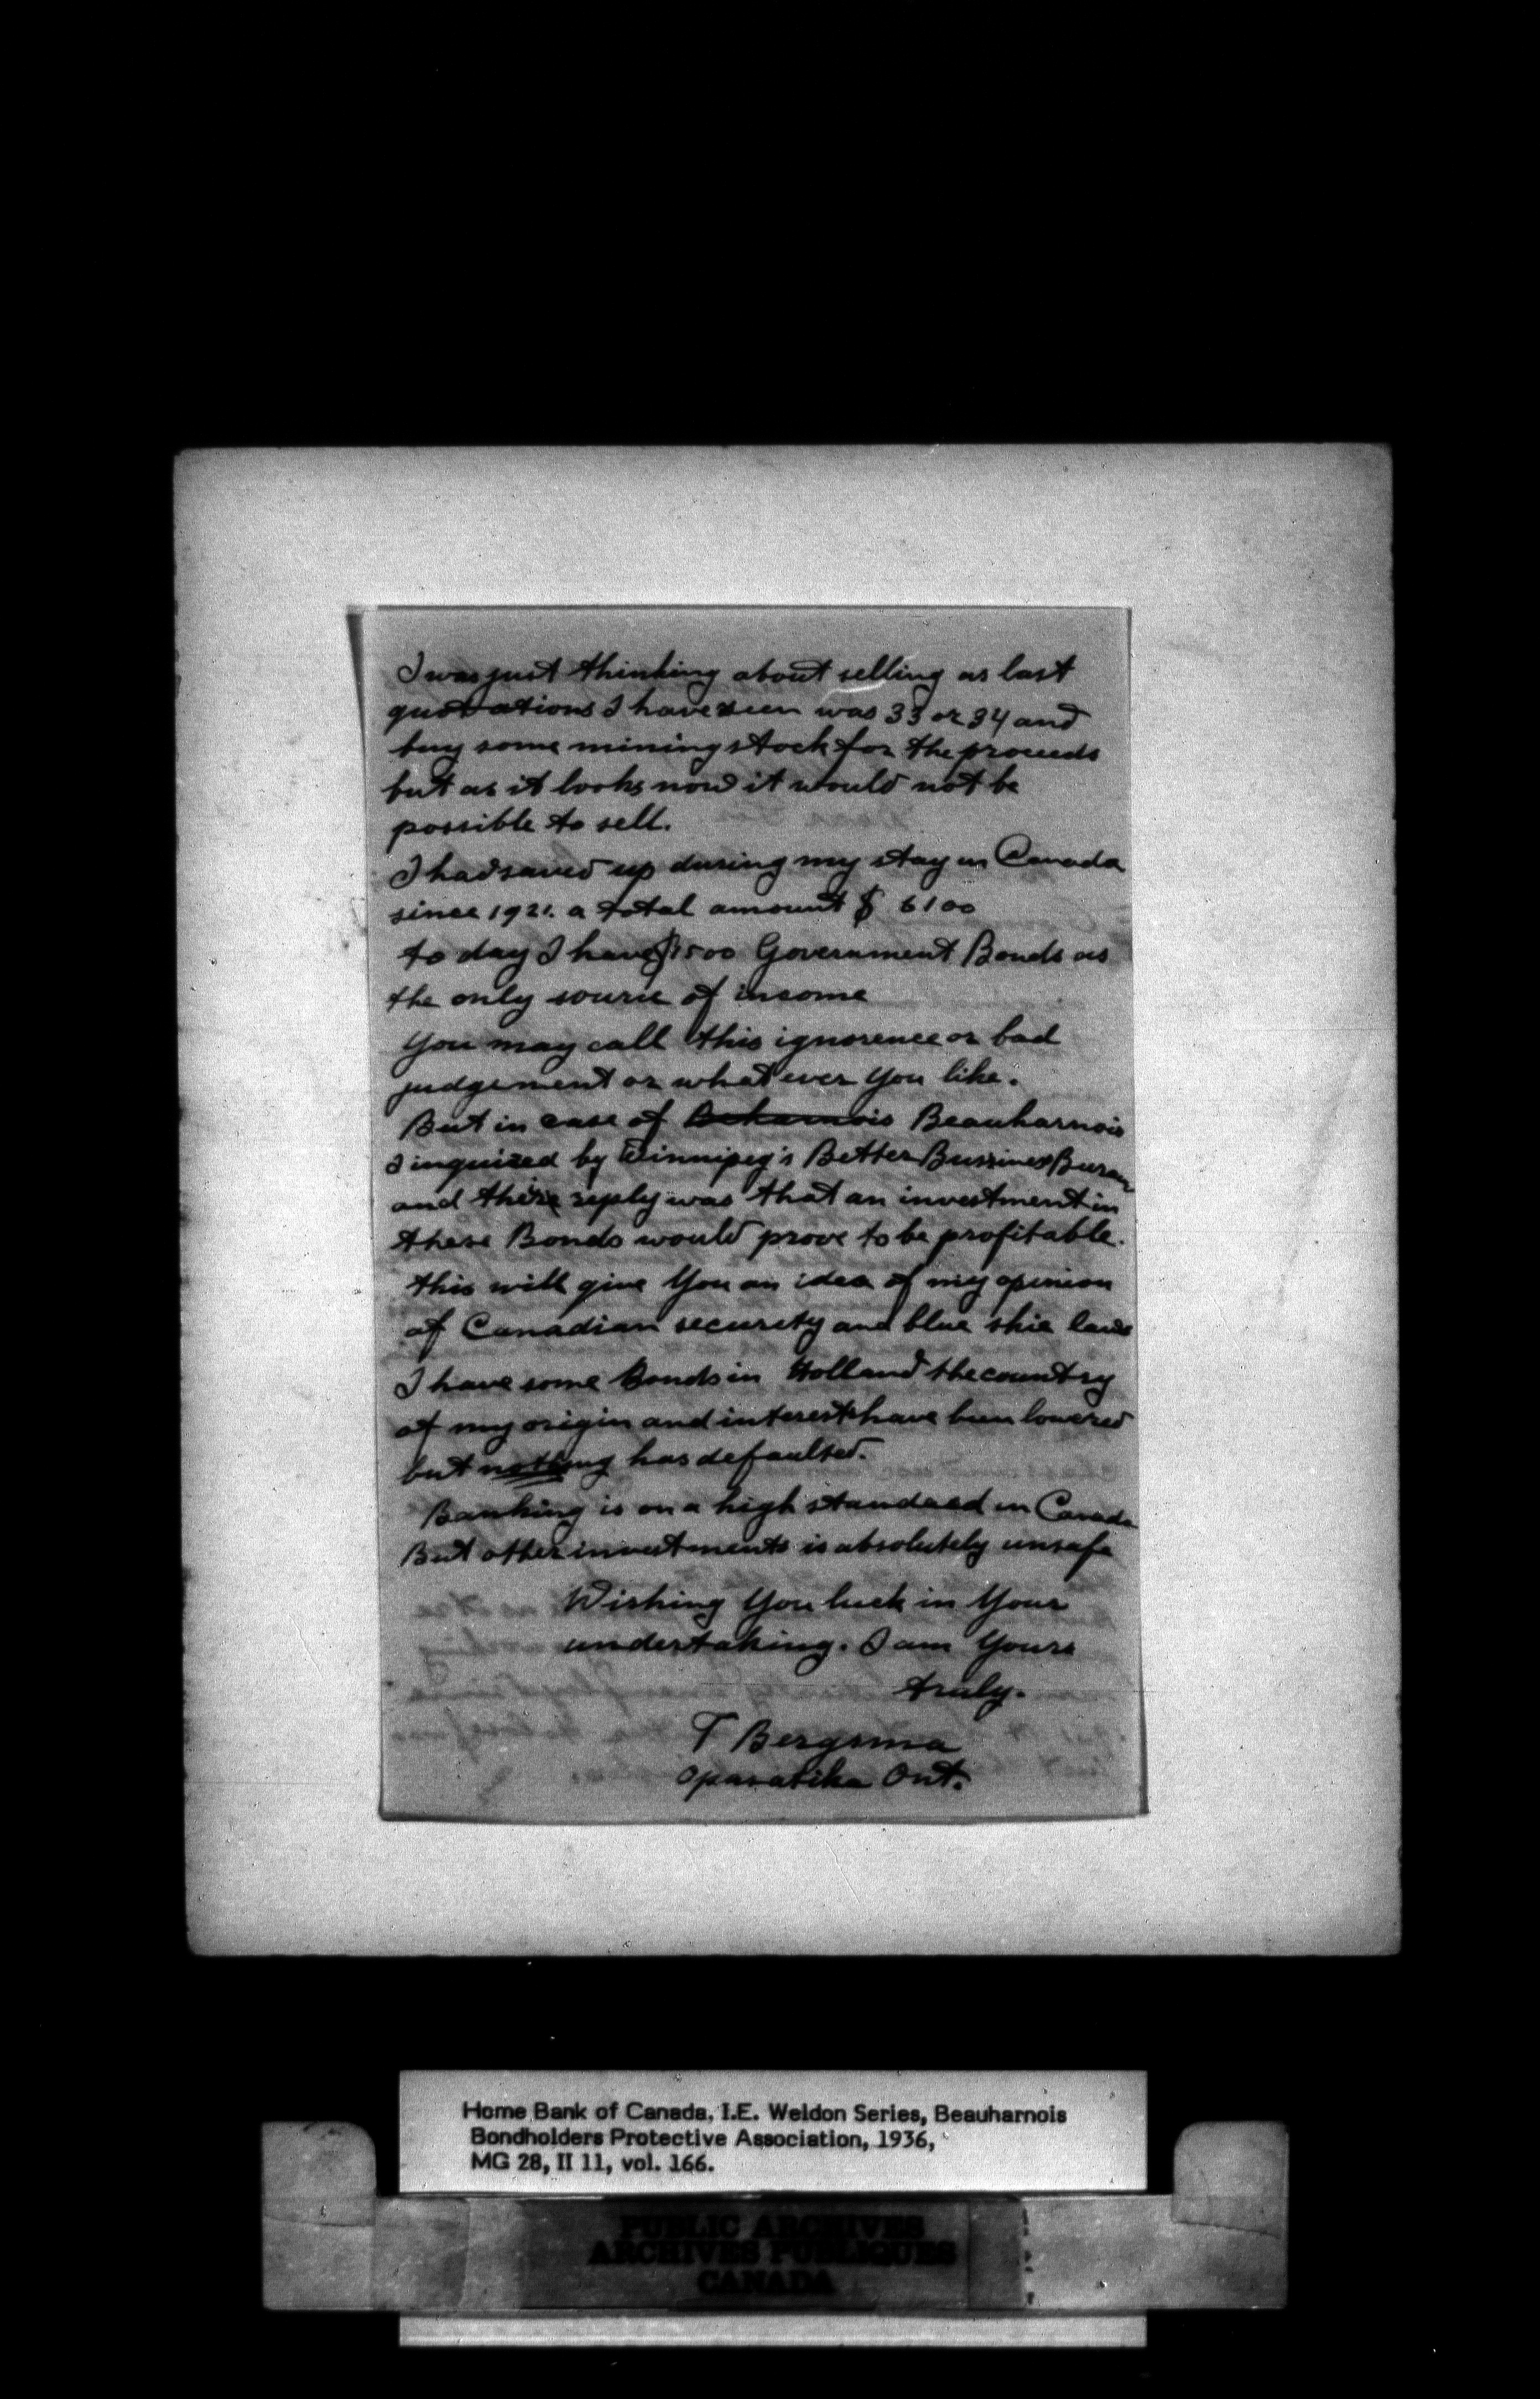 I was just thinking about selling as last
quotations I have seen was 33 or 34 and
buy some mining stock for the proceeds
but as it looks now it would not be
possible to sell.
I had saved up during my stay in Canada
since 1921. a total amount $ 6100
to day I have $1500 Government Bonds as
the only sourie of income
You may call this ignorence or bad
judgement or what ever You like.
But in case of Beharnois Beauharnois
I inquired by Winnipeg's Better Bussines Bureau
and their reply was that an investment in
these Bonds would prove to be profitable.
this will give You an idea of my opinion
of Canadian security and blue skie laws
I have some Bonds in Holland the country
of my origin and interest have been lowered
but nothing has defaulted.
Banking is on a high standard in Canada
But other investments is absolutely unsafe
Wishing You luck in Your
undertaking. I am Yours
truly.
T Bergsma
Oparatika Ont.
Home Bank of Canada, I.E. Weldon Series, Beauharnois
Bondholders Protective Association, 1936,
MG 28, II 11, vol. 166.
PUBLIC ARCHIVES
ARCHIVES PUBLIQUES
CANADA